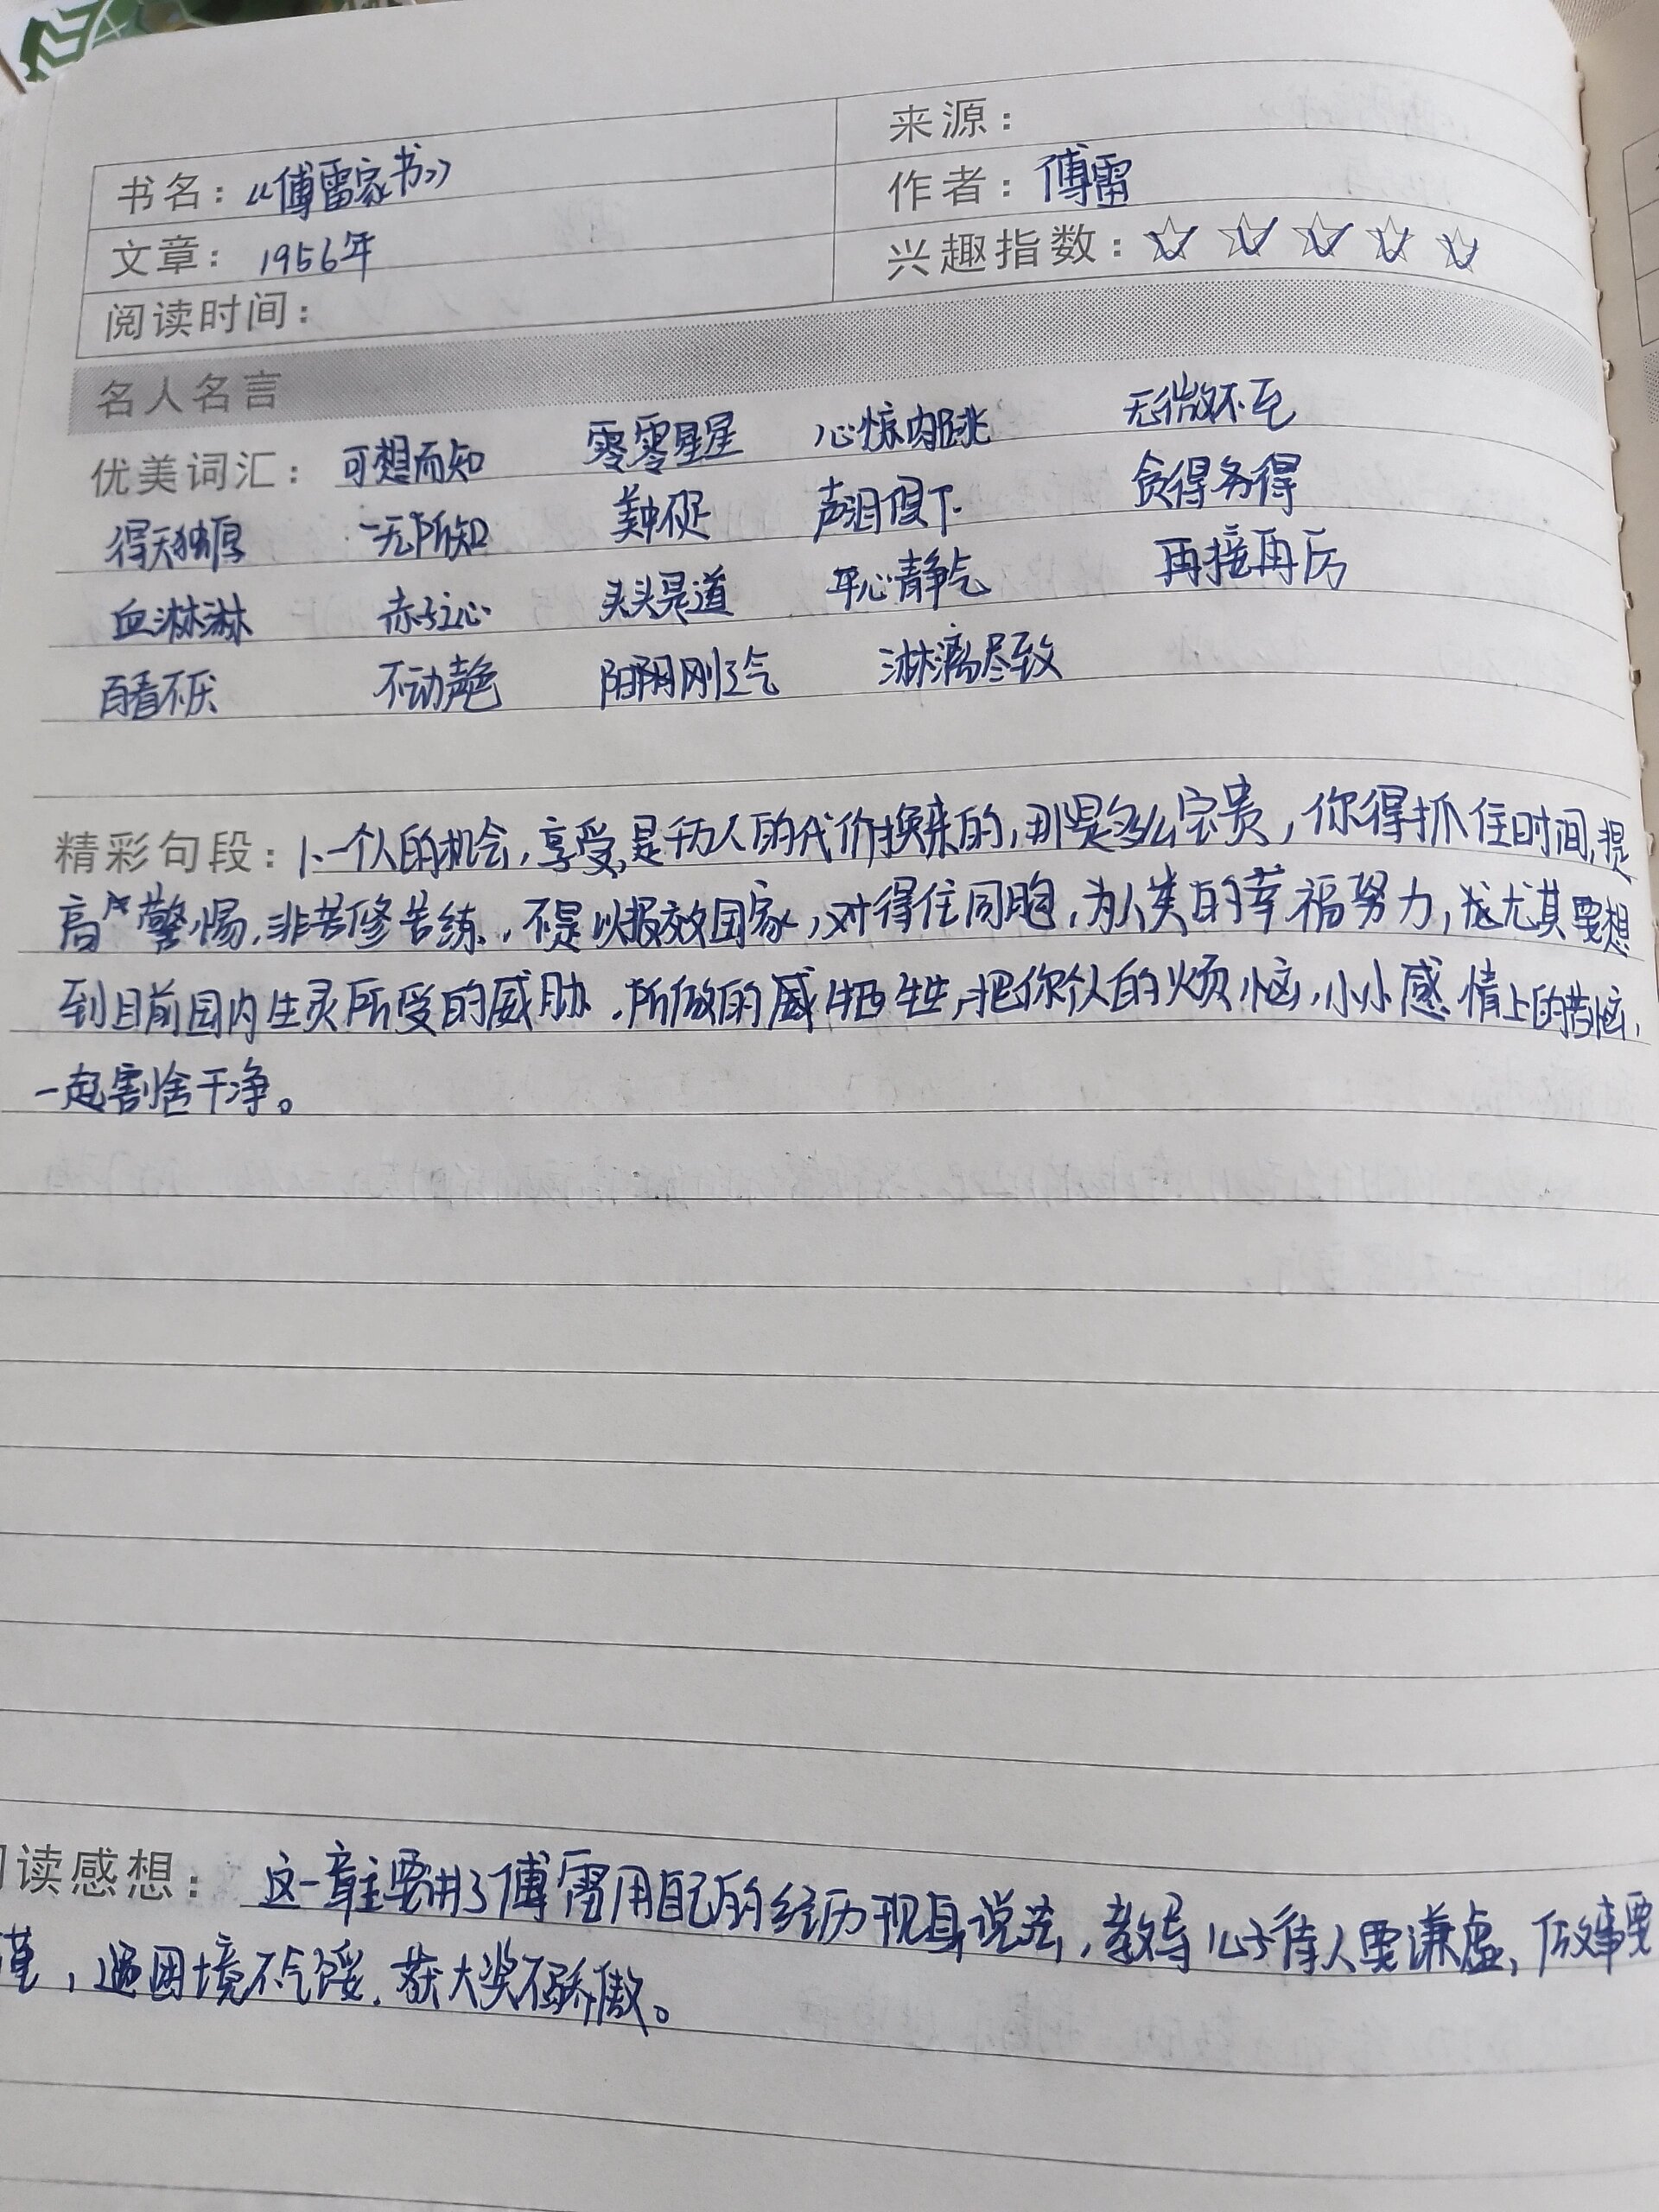 来源：
书名：《傅雷家书》 作者：傅雷
文章：1956年 兴趣指数：☆☆☆☆☆
阅读时间：
名人名言
优美词汇：可想而知 零零星星 心惊肉跳 无微不至
得天独厚 一无所知 美中不足 声泪俱下 贪得务得
血淋淋 赤子之心 头头是道 平心静气 再接再厉
百看不厌 不动声色 阳刚之气 淋漓尽致
精彩句段：1、一个人的机会,享受,是千万人的代价换来的,那是多么宝贵,你得抓住时间,提
高警惕,非苦修苦练,不足以报效国家,对得住同胞,为人类的幸福努力,尤其要想
到目前国内生灵所受的威胁,所做的牺牲,把你个人的烦恼,小小感情上的苦恼,
一起割舍干净。
读感想：这一章主要讲了傅雷用自己的经历现身说法,教导儿子待人要谦虚,做事要
谨,遇困境不气馁,获大奖不骄傲。